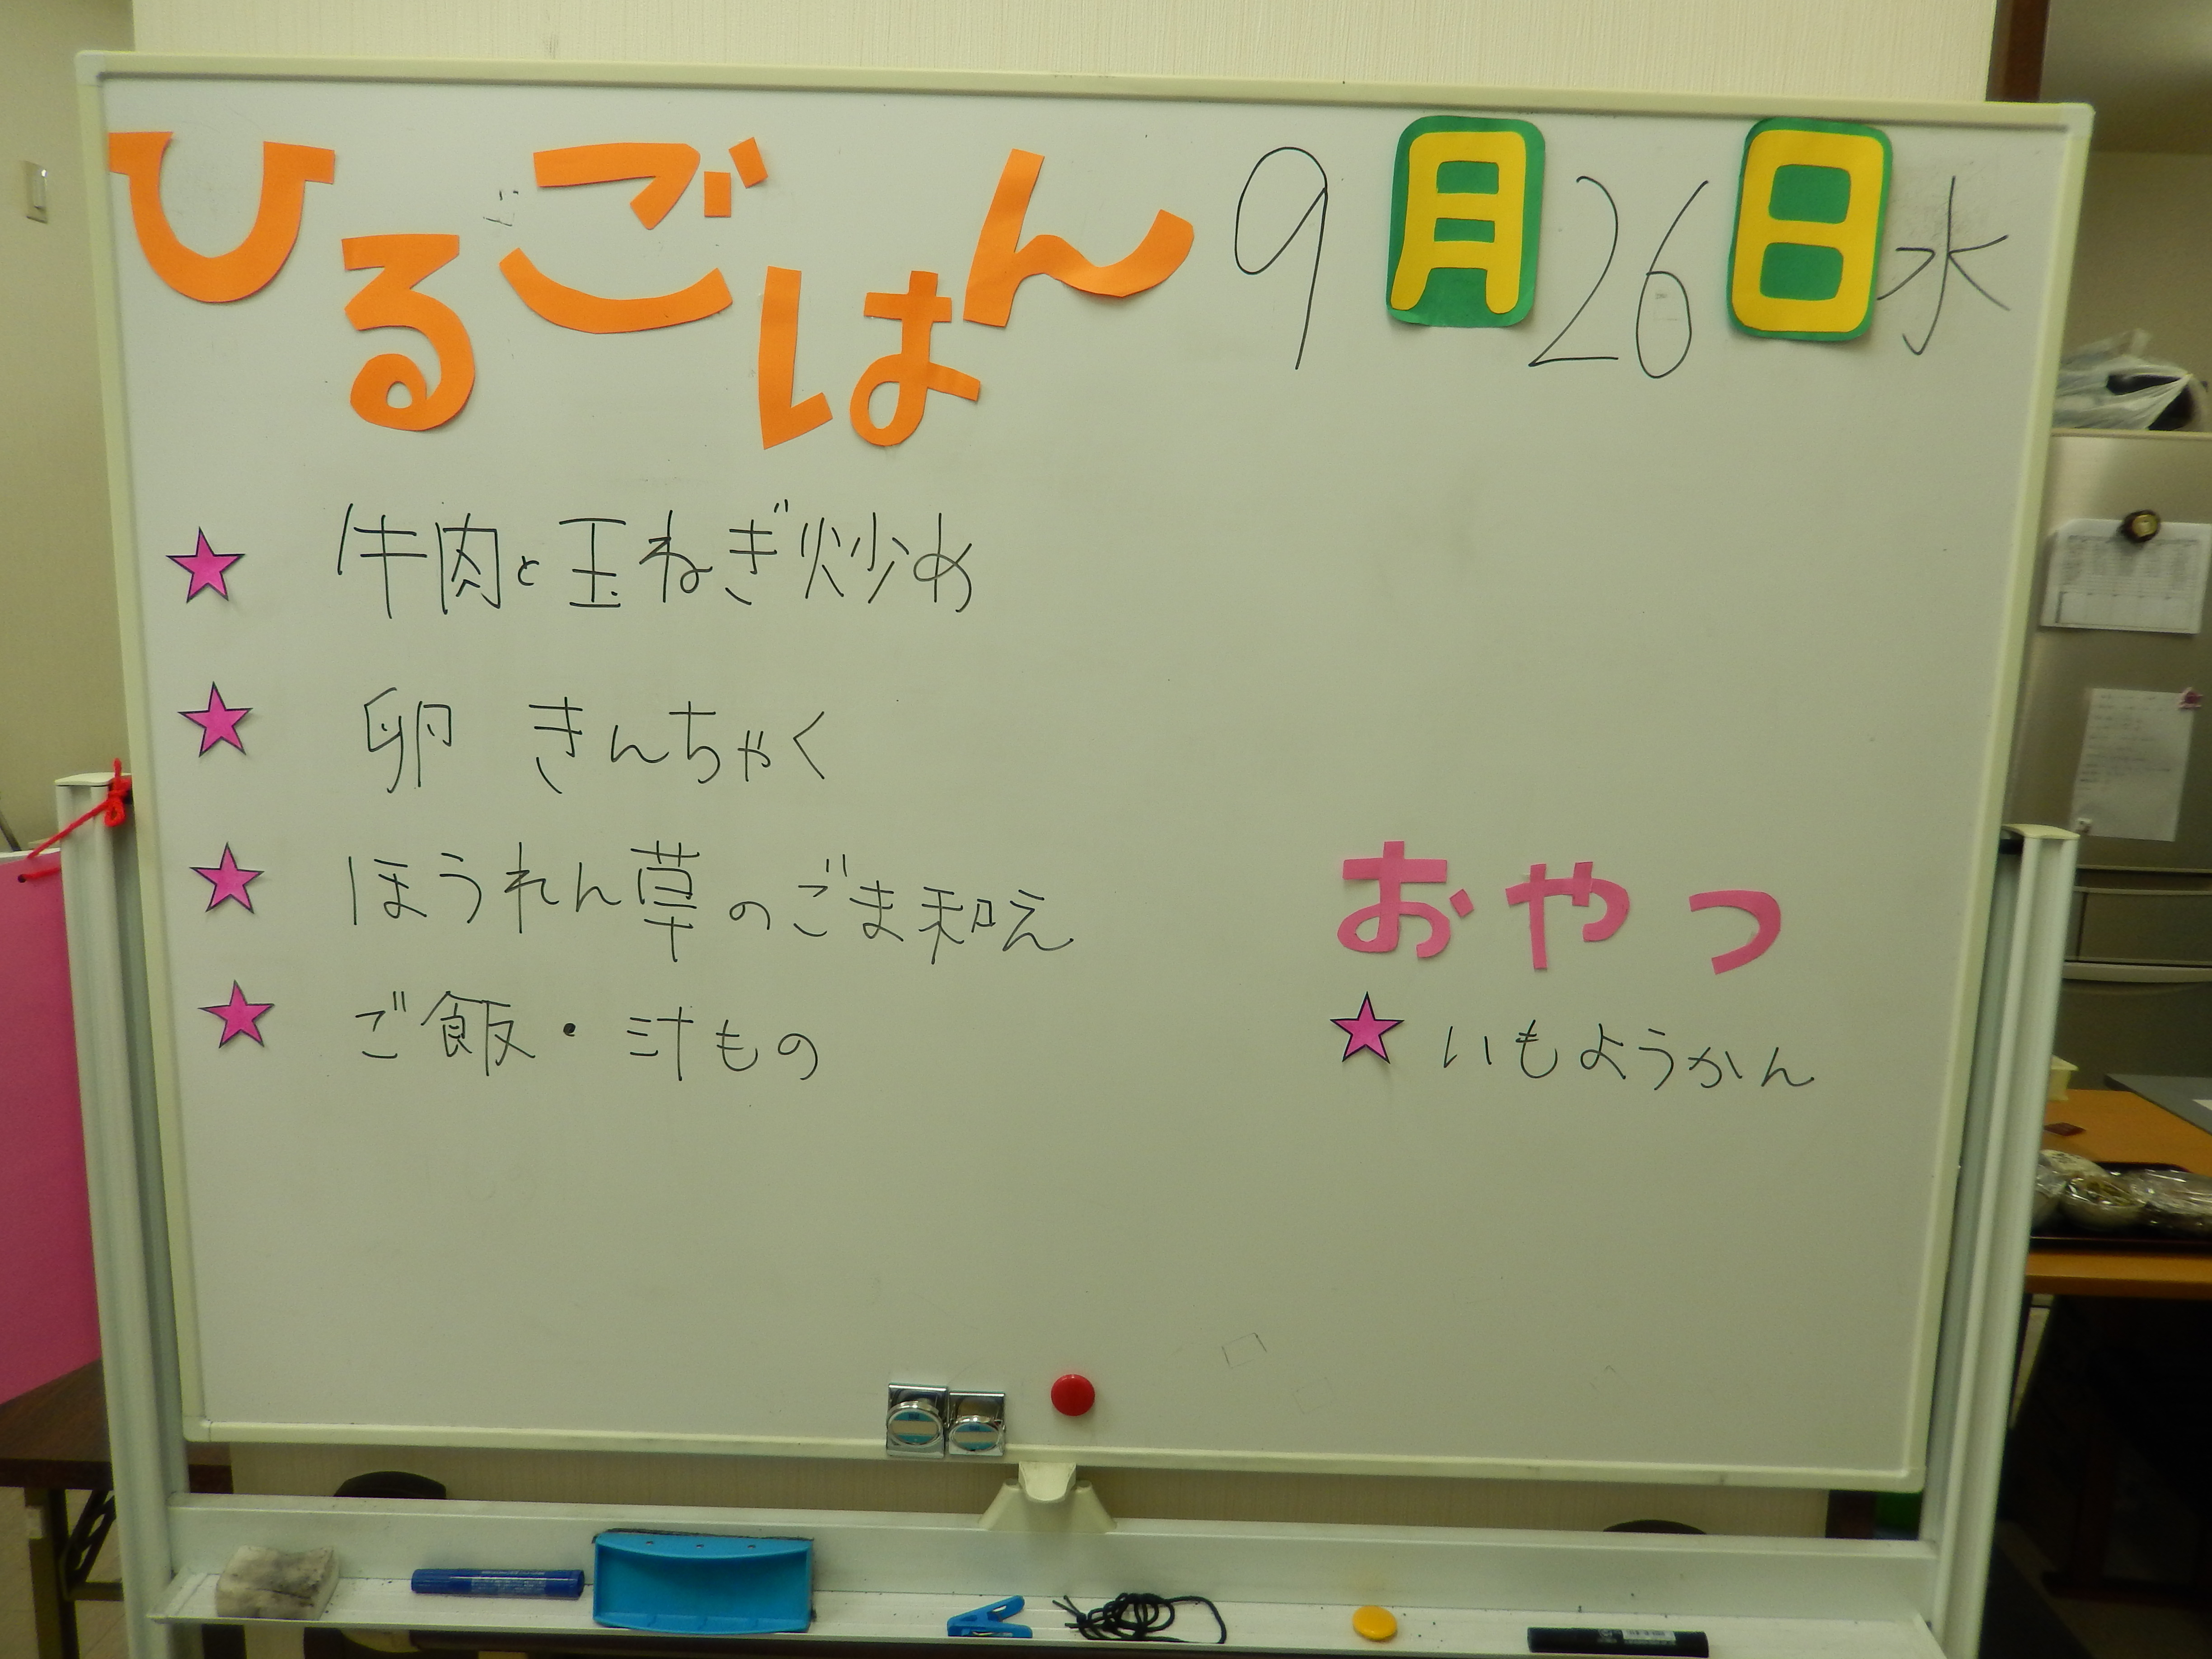 ひるごはん 9月26日水
牛肉と玉ねぎ炒め
卵 きんちゃく
ほうれん草のごま和え
ご飯・汁もの
おやつ
いもようかん